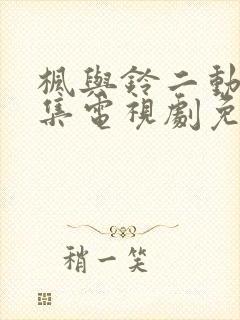 楓與鈴二動
集電視劇免
稍一笑